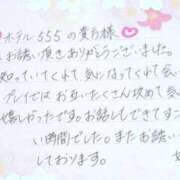 ホテル555の貴方様
お誘い頂きありがとうございました。
知っていてくれて、会いになってくれて
プレイではお互いたくさん攻めて
嬉しかったです。お話しもできてす
い時間でした。またお誘い
しております。